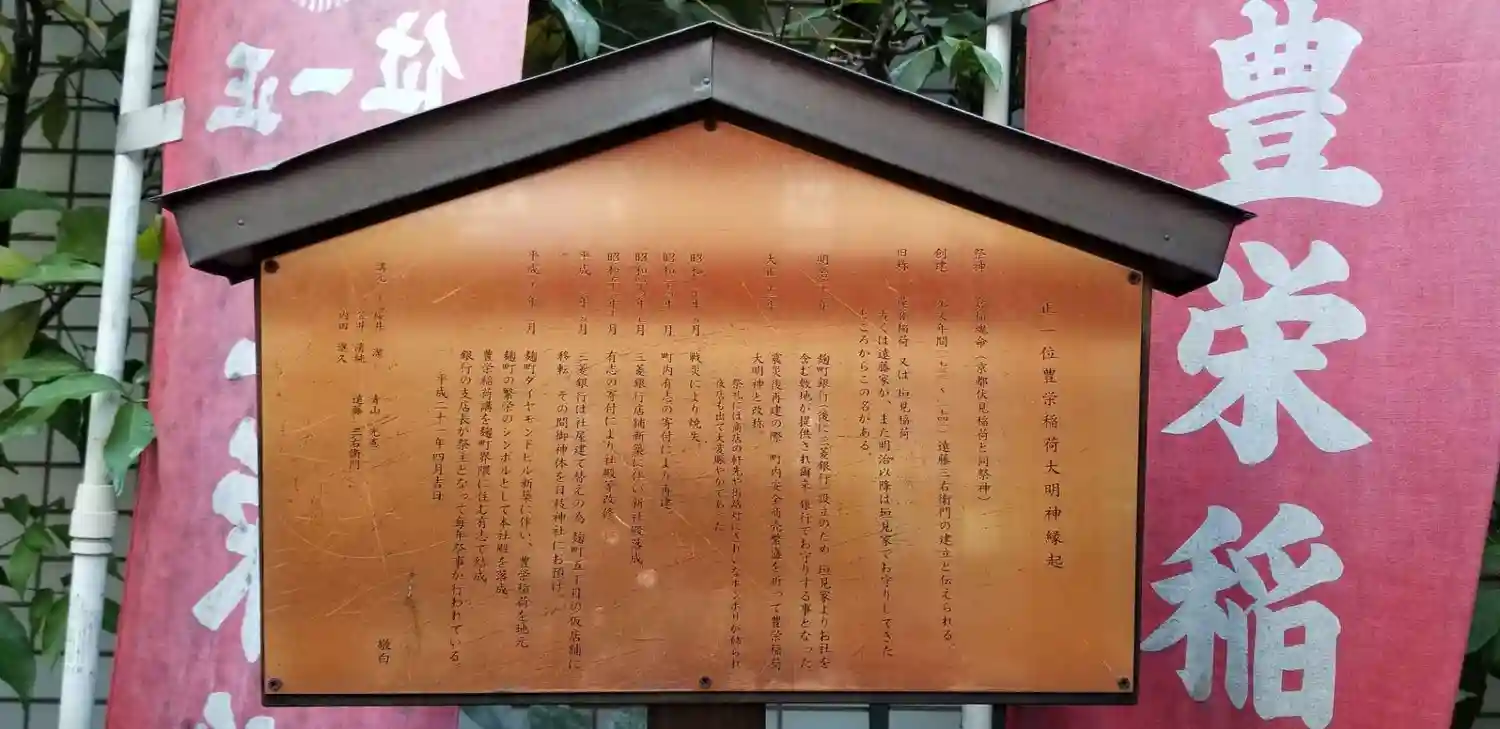 正一位豊栄稲荷大明神縁起
祭神
魂命（京都伏見稲荷と同祭神）
創建
年間
遠藤三右衛門の建立と伝えられる。
旧称
稲荷 又は 垣見稲荷
古くは遠藤家が、また明治以降は垣見家でお守りしてきた
ところからこの名がある。
明治
年
麹町銀行（後に三菱銀行）設立のため、垣見家よりお社を
含む敷地が提供され爾来、銀行でお守りする事となった
大正
年
震災後再建の際、町内安全商売繁盛を祈って豊栄稲荷
大明神と改称。
祭礼には商店の軒先や街路灯に
ボンボリが飾られ
夜店も出て大変賑やかであった
昭和
年
月
戦災により焼失。
昭和
年
月
町内有志の寄付により再建
昭和
年
月
三菱銀行店舗新築に伴い新社殿落成
昭和
年
月
有志の寄付により社殿等改修
平成
年
月
三菱銀行は社屋建て替えの為、麹町五丁目の仮店舗に
移転。その間御神体を日枝神社にお預け。
平成
年
月
麹町ダイヤモンドビル新築に伴い、豊栄稲荷を地元
麹町の繁栄のシンボルとして本社殿を落成
豊栄稲荷講を麹町界隈に住む有志で結成
銀行の支店長が祭主となって毎年祭事が行われている。
平成二十一年四月吉日
講元
桜井 潔
青山
遠藤 三右衛門
内田
敬白
豊栄稲
正一位